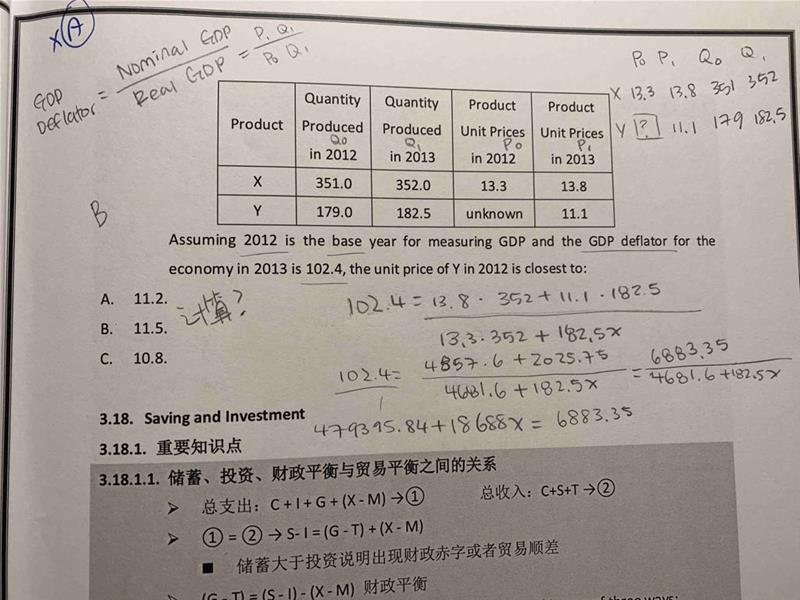 × A
GDP Deflator = Nominal GDP / Real GDP = P₁ Q₁ / P₀ Q₁
P₀ P₁ Q₀ Q₁
X 13.3 13.8 351 352
Y ? 11.1 179 182.5
Product | Quantity Produced Q₀ in 2012 | Quantity Produced Q₁ in 2013 | Product Unit Prices P₀ in 2012 | Product Unit Prices P₁ in 2013
X 351.0 352.0 13.3 13.8
Y 179.0 182.5 unknown 11.1
B
Assuming 2012 is the base year for measuring GDP and the GDP deflator for the
economy in 2013 is 102.4, the unit price of Y in 2012 is closest to:
A. 11.2.
B. 11.5.
C. 10.8.
计算?
102.4 = 13.8 · 352 + 11.1 · 182.5
13.3 · 352 + 182.5x
102.4 / 1 = 4857.6 + 2025.75 / 4681.6 + 182.5x = 6883.35 / 4681.6 + 182.5x
479395.84 + 18688x = 6883.35
3.18. Saving and Investment
3.18.1. 重要知识点
3.18.1.1. 储蓄、投资、财政平衡与贸易平衡之间的关系
➢ 总支出：C + I + G + (X - M) →① 总收入：C+S+T →②
➢ ① = ② → S- I = (G - T) + (X - M)
■ 储蓄大于投资说明出现财政赤字或者贸易顺差
➢ (G - T) = (S - I) - (X - M) 财政平衡
of three ways: